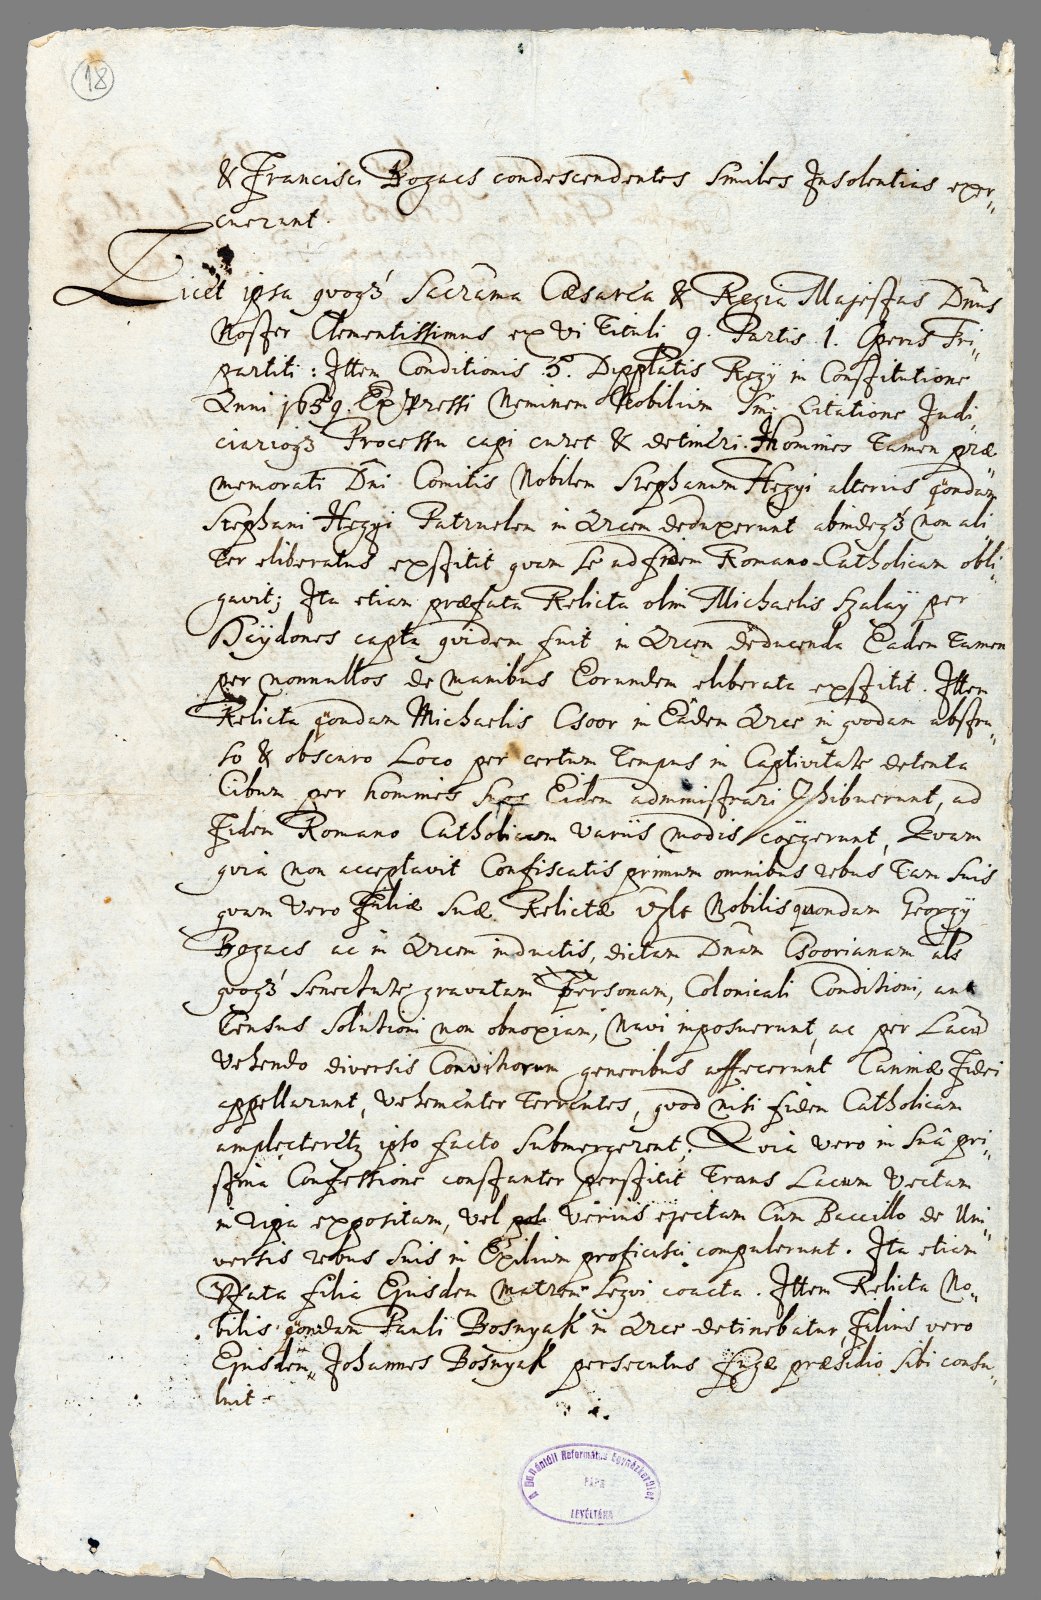 18
& Francisci Bogacs condescendentes Similes Insolentias exer„
cuerunt.
Licet ipsa quoq3 Sacrama Cæsarea & Regia Majestas Dnus
Noster Clementissimus ex vi Tituli 9. Partis .1. Operis Tri„
partiti: Ittem Conditionis .5. Dipplatis Regy in Constitutione
Anni 1659. Expressi Neminem Nobilium Sine Citatione Judi„
ciarioq3 Processu capi curet & detineri. Homines Tamen præ„
memorati Dni Comitis Nobilem Stephanum Hegyi alterius qondam
Stephani Hegyi Patruelem in Arcem deduxerunt abindeq3 non ali„
ter eliberatus exstitit quam se ad fidem Romano-Catholicam obli„
gavit; Ita etiam præfata Relicta olim Michaelis Szalay per
Haydones capta quidem fuit in Arcem deducenda Eadem Tamen
per nonnullos de manibus Eorundem eliberata exstitit. Ittem
Relicta qondam Michaelis Csoor in Eadem Arce in quodam abstru„
so & obscuro Loco per certum Tempus in Captivitate detenta
Cibum per homines suos Eidem administrari Phibuerunt, ad
Fidem Romano Catholicam variis modis coëgerunt, Quam
quia non acceptavit Confiscatis primum omnibus rebus Tam suis
quam vero Filiæ suæ Relictæ vzlt Nobilis quondam Georgÿ
Bogacs ac in Arcem inductis, dictam Dnam Csoorianam als
quoq3 Senectute gravatam Personam, Colonicali Conditioni, aut
Census Solutioni non obnoxiam, Navi imposuerunt, ac per Lacum
Vehendo diversis Convitiorum generibus affecerunt Caninæ Fidei
appellarunt, Vehementer Terrentes, quod nisi fidem Catholicam
amplecteretz ipso facto Submergerent; Quia vero in Suâ pri„
stina Confessione constanter perstitit Trans Lacum Vectam
in ripa expositam, vel verius ejectam Cum Baccillo de Uni„
versis rebus suis in Exilium proficisci compulerunt. Ita etiam
Pfata filia Ejusdem Matrem Seqvi coacta. Ittem Relicta No„
bilis qondam Pauli Bosnyak in Arce detinebatur, Filius vero
Ejusdem„ Johannes Bosnyak persecutus fugæ præsidio sibi consu„
luit.
A Dunántúli Református Egyházkerület
PÁPA
LEVÉLTÁRA